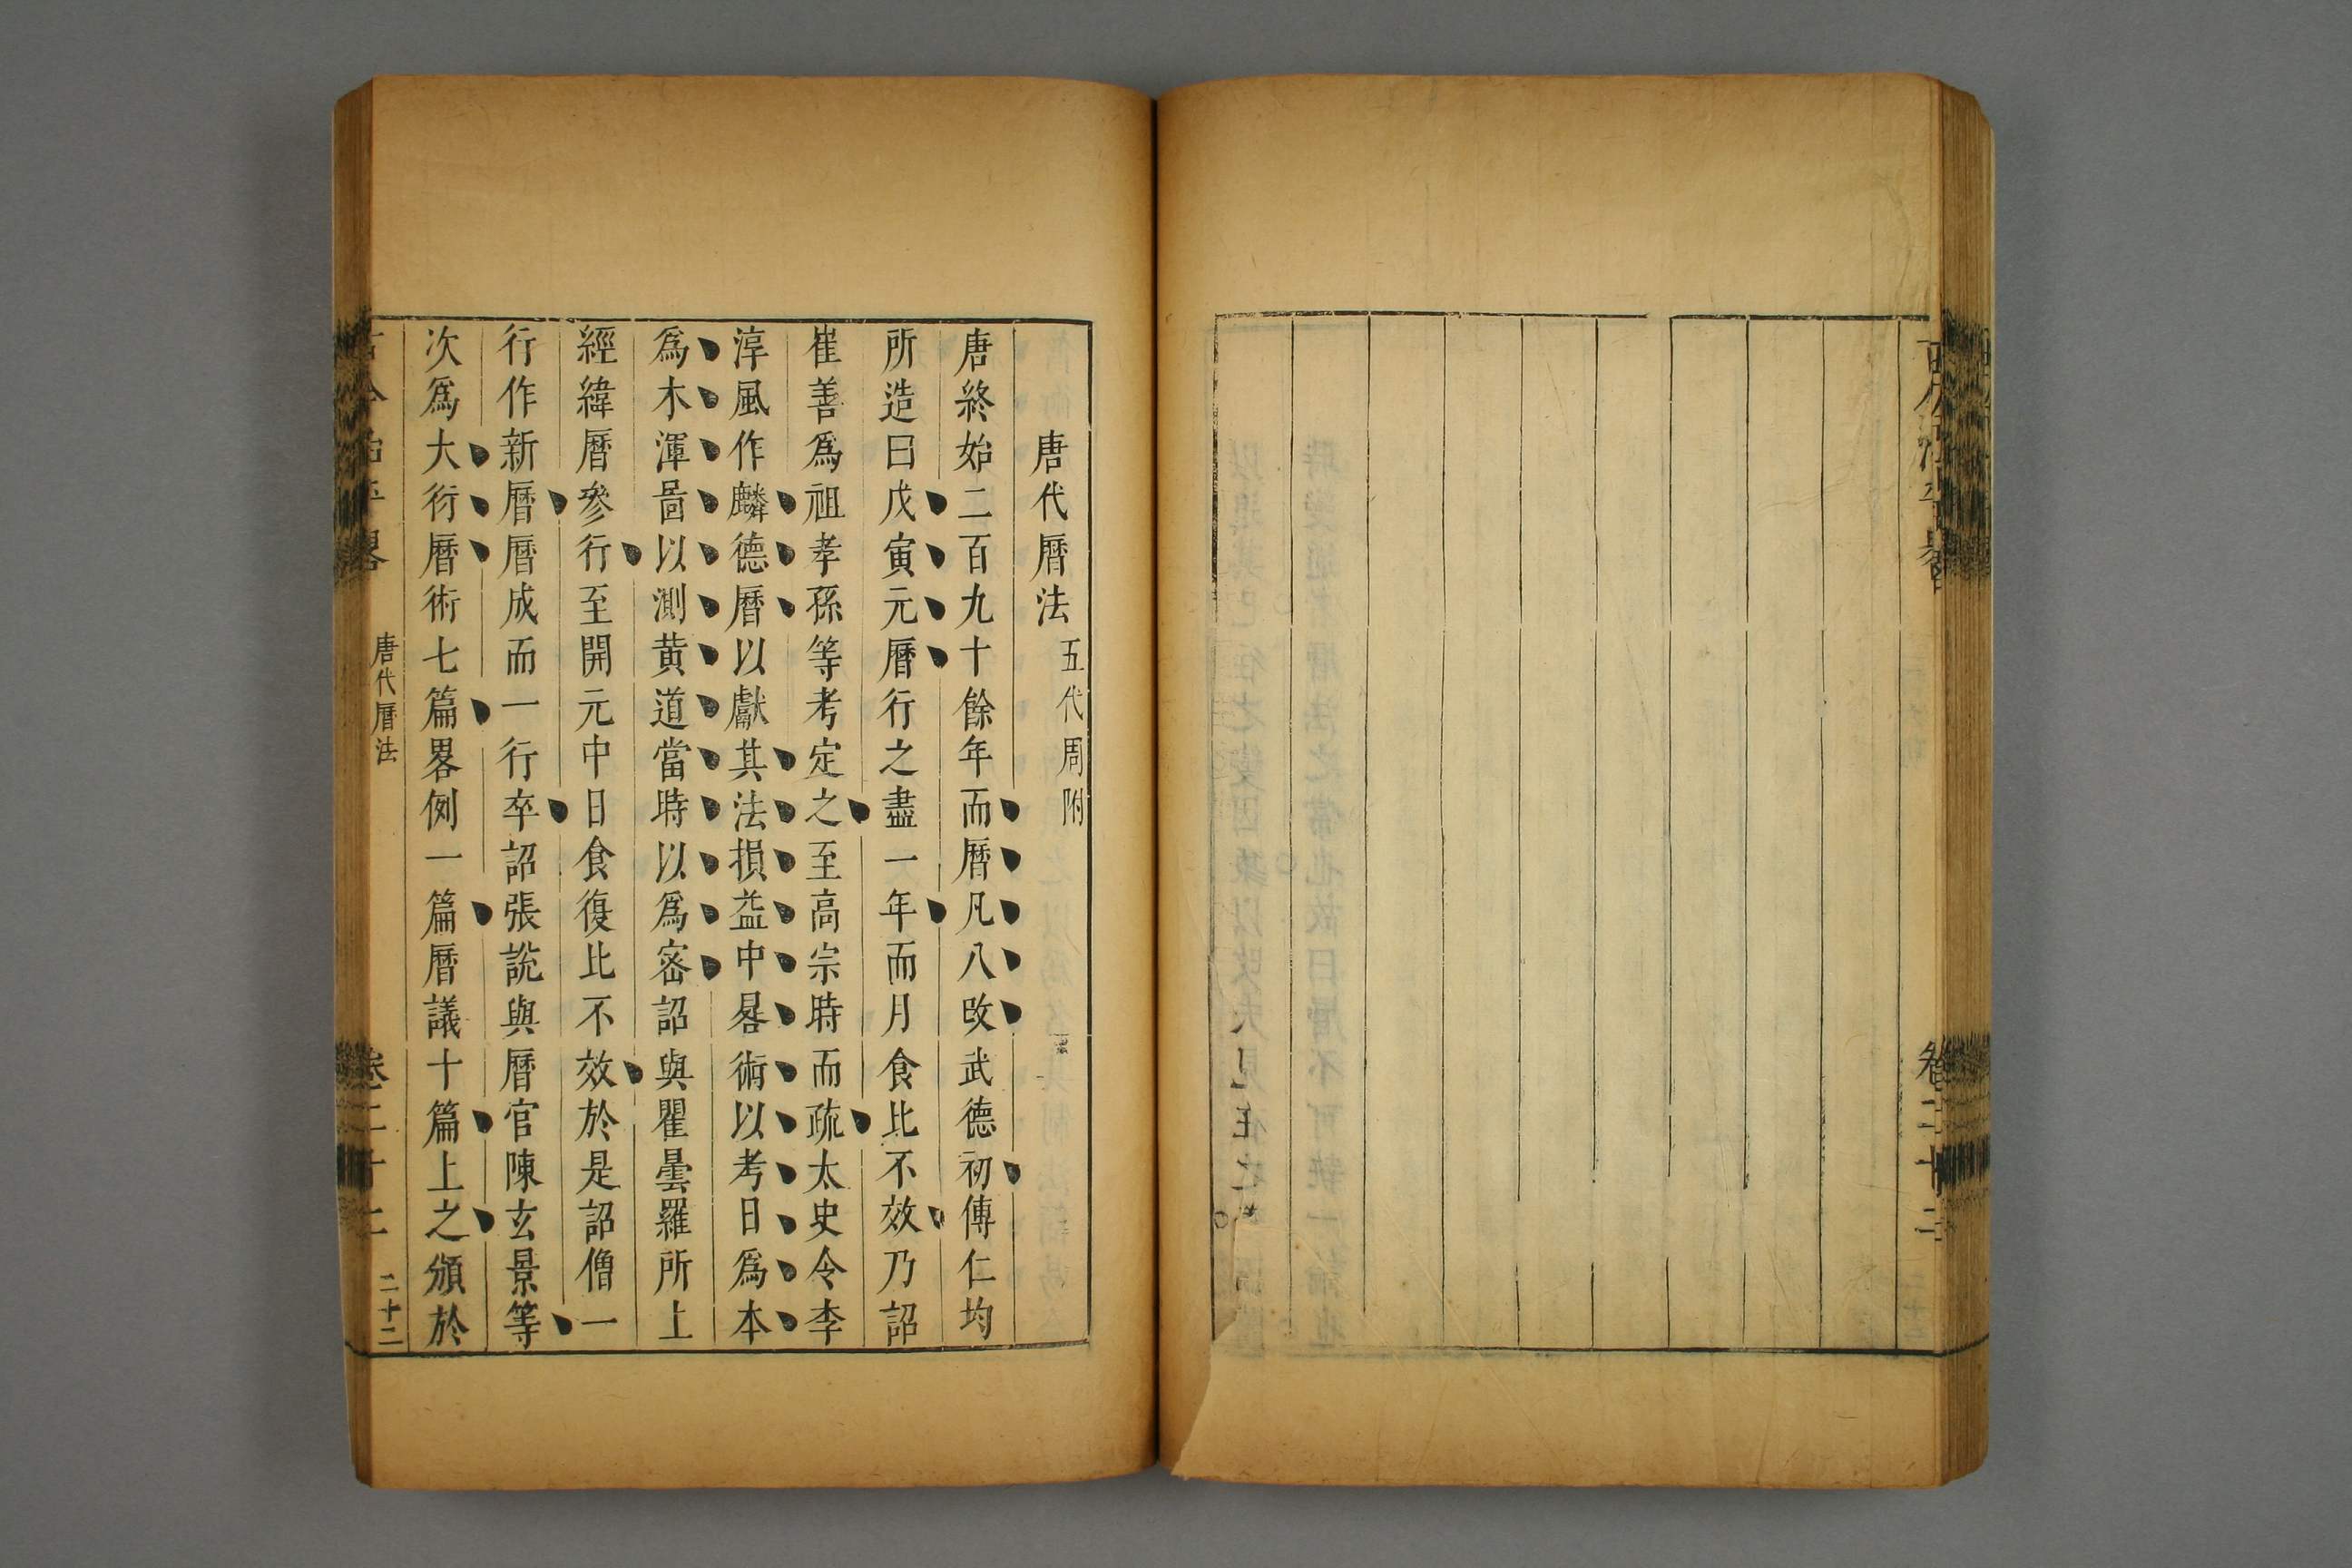 唐代曆法 五代周附
唐終始二百九十餘年而曆凡八改武德初傳仁均
所造曰戊寅元曆行之盡一年而月食比不效乃詔
崔善爲祖孝孫等考定之至高宗時而疏太史令李
淳風作麟德曆以獻其法損益中晷術以考日爲本
爲木渾啚以測黄道當時以爲宻詔與瞿曇羅所上
經緯曆參行至開元中日食復比不效於是詔僧一
行作新曆曆成而一行卒詔張說與曆官陳玄景等
次爲大衍曆術七篇畧例一篇曆議十篇上之頒於
唐代曆法
卷二十二
二十二